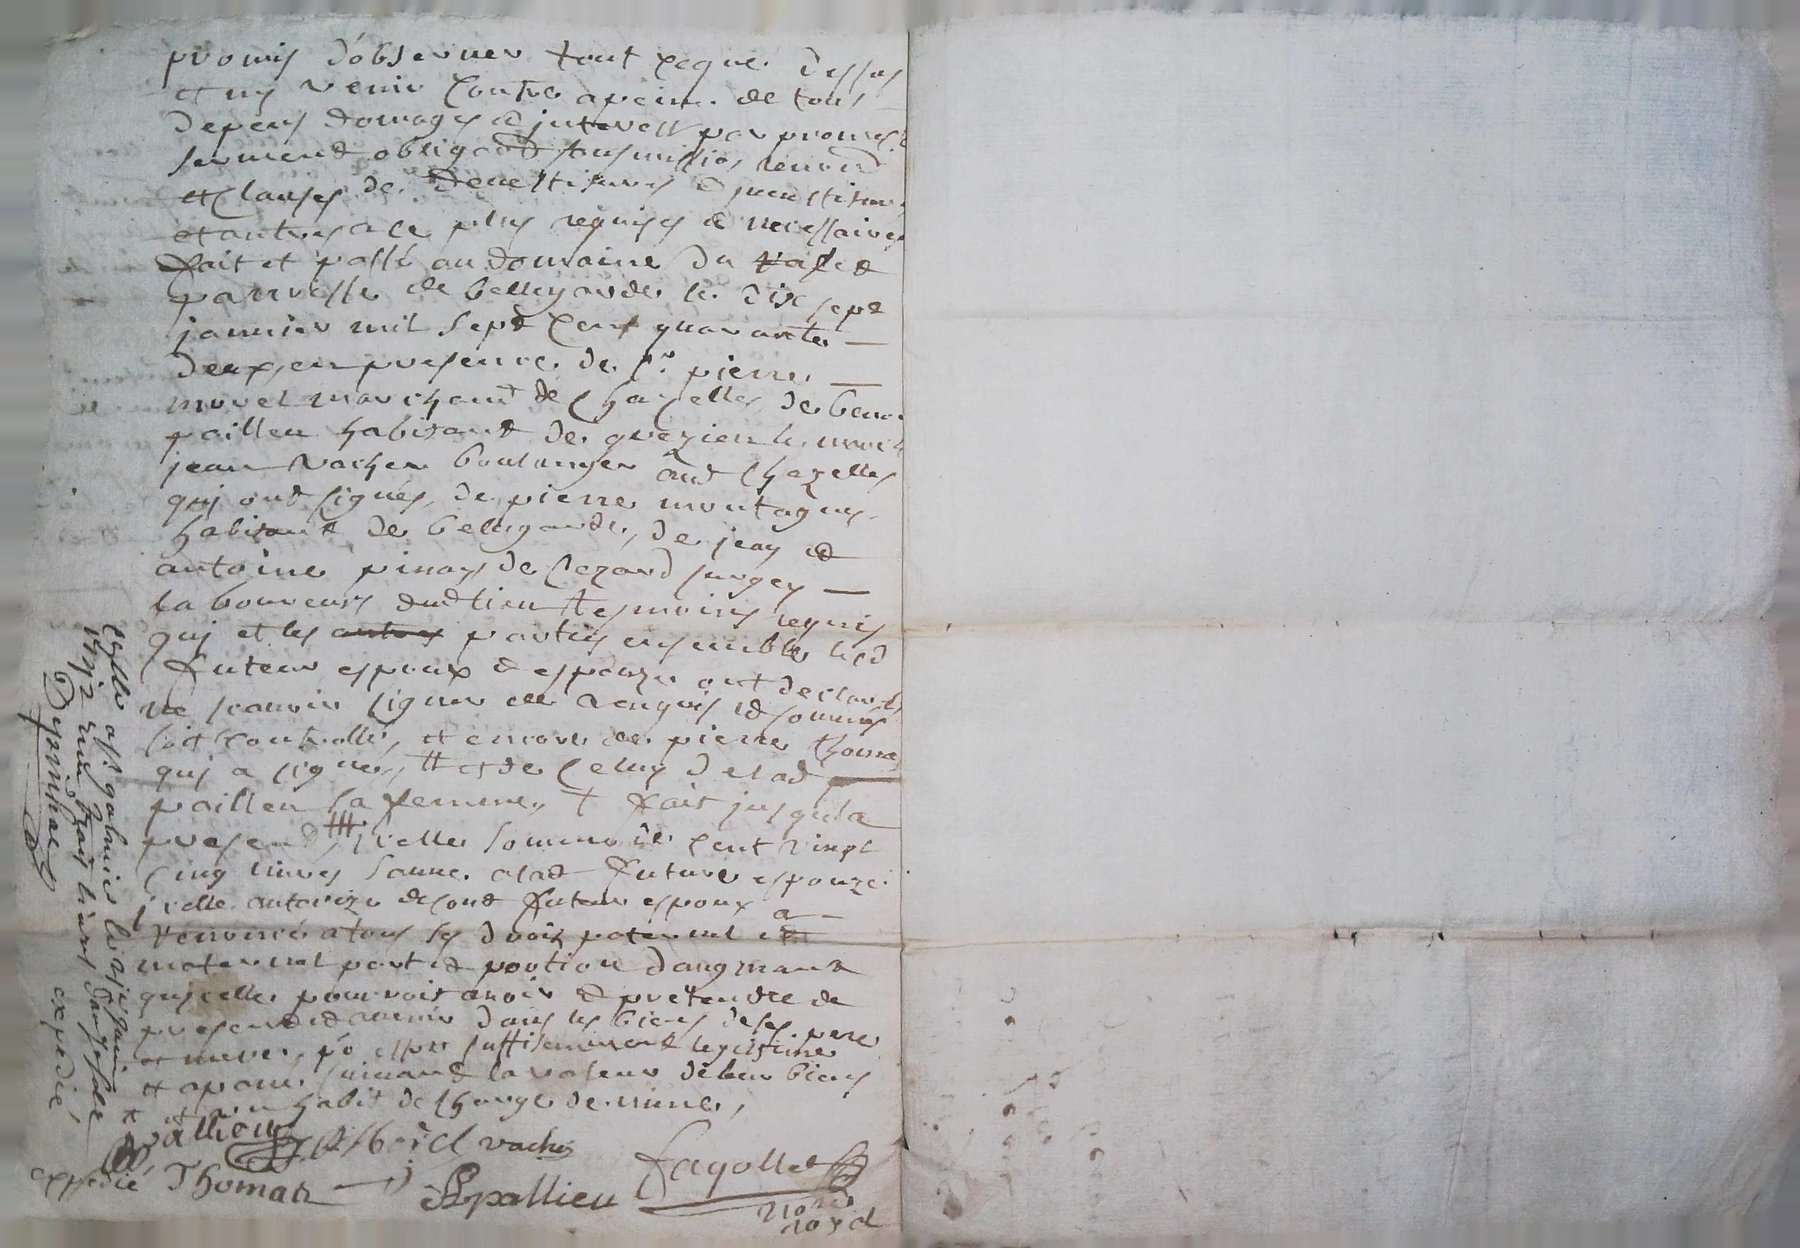 promis d'observer tout ce que dessus
et ny venir contre a peine de tous
depens domages & interest par promes
serment obligaõns soumissioñ renonõ
et clauses de devestitures & investiture
et autres a ce plus requises & necessaires
fait et passé au domaine du
parroisse de bellegarde le dix sept
janvier mil sept cent quarante
deux, en presence de sr. pierre
morel marchant de Chazelles, de beno
pailleu habitant de le
jean vacher boulanger aud Chazelles
qui ont signés, de pierre montagny
habitant de bellegarde, de jean &
antoine pinay de
laboureurs dud lieu tesmoins requis
qui et les autres parties ensembles lesd
futeur espoux & espouze ont declarés
ne scavoir signer de ce enquis & sommés
soit controllé, et encore de pierre thomas
qui a signé, ++ et de celuy de lad
pailleu sa femme, + fait jusqu'a
present, +++ icelle somme de cent vingt
cinq livres donne a lad future espouze
icelle autorizée de sond futeur espoux a
renoncé a tous ses droits paternel et
maternel part & portion d'augmant
qu'icelle pourroit avoir & pretendre de
present & avenir dans les biens de ses pere
et mere, p^r estre suffisemment legitimée
et apanée suivant la valeur de leur biens
+ et a un habit de charge de mine,
pallieu morel vacher
Thomas JB pallieu fagollet
nore
royal
expedié
Con^llé a St galmier le 27 janvier
1742 reçu trois livres
Depinhac
expedié